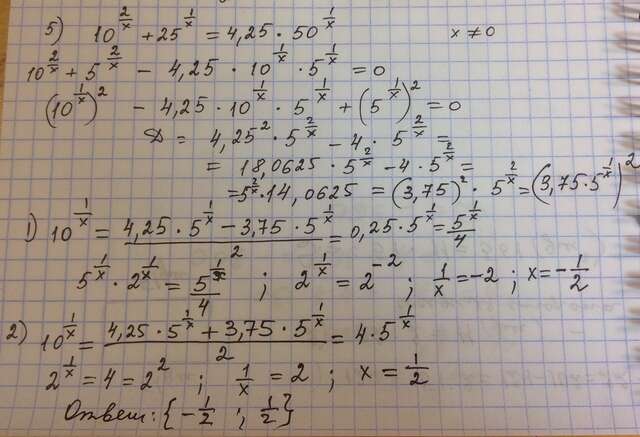 5) 10^(2/x) + 25^(1/x) = 4,25 · 50^(1/x)    x ≠ 0
10^(2/x) + 5^(2/x) - 4,25 · 10^(1/x) · 5^(1/x) = 0
(10^(1/x))^2 - 4,25 · 10^(1/x) · 5^(1/x) + (5^(1/x))^2 = 0
D = 4,25^2 · 5^(2/x) - 4 · 5^(2/x) =
= 18,0625 · 5^(2/x) - 4 · 5^(2/x) =
= 5^(2/x) · 14,0625 = (3,75)^2 · 5^(2/x) = (3,75 · 5^(1/x))^2
1) 10^(1/x) = (4,25 · 5^(1/x) - 3,75 · 5^(1/x))/2 = 0,25 · 5^(1/x) = 5^(1/x)/4
5^(1/x) · 2^(1/x) = 5^(1/x)/4 ; 2^(1/x) = 2^(-2) ; 1/x = -2 ; x = -1/2
2) 10^(1/x) = (4,25 · 5^(1/x) + 3,75 · 5^(1/x))/2 = 4 · 5^(1/x)
2^(1/x) = 4 = 2^2 ; 1/x = 2 ; x = 1/2
Ответ: {-1/2 ; 1/2}